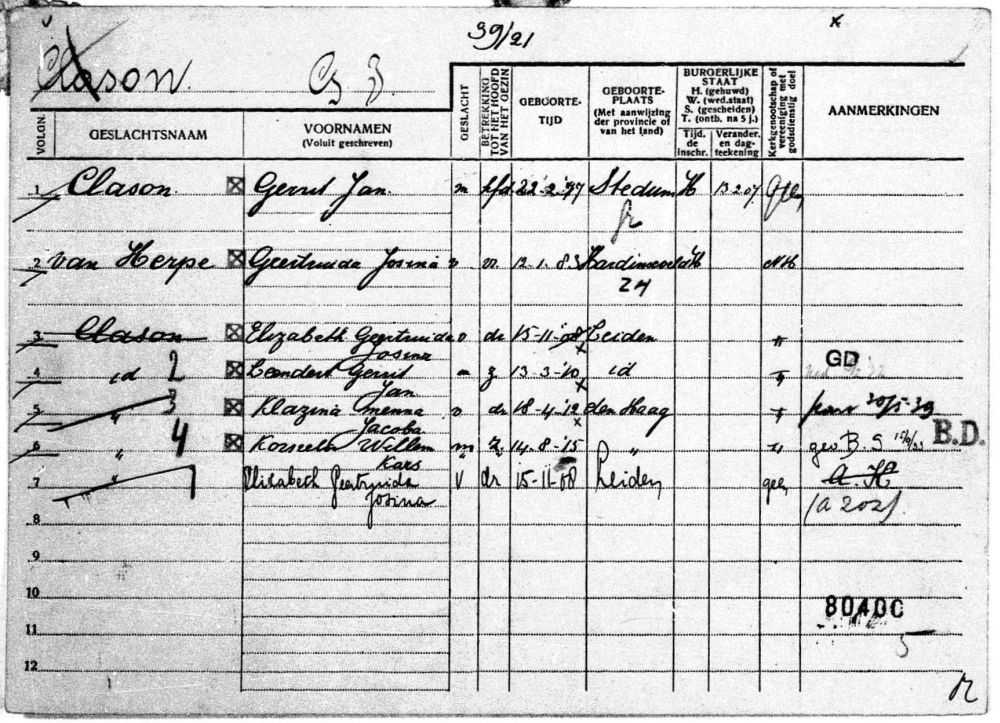 39/21
Clason. G J.
VOLGN. GESLACHTSNAAM VOORNAMEN (Voluit geschreven) GESLACHT BETREKKING TOT HET HOOFD VAN HET GEZIN GEBOORTE-TIJD GEBOORTE-PLAATS (Met aanwijzing der provincie of van het land) BURGERLIJKE STAAT H. (gehuwd) W. (wed.staat) S. (gescheiden) T. (ontb. na 5 j.) Tijd. de inschr. Verander. en dag-teekening Kerkgenootschap of vereeniging met godsdienstig doel AANMERKINGEN
1 Clason. Gerrit Jan. m hfd 22-2-'77 Stedum H 13.2.07
gr
2 van Herpe Geertruida Josina v vr. 12-1-83 Hardinxveld H NH
ZH
3 Clason Elizabeth Geertruida v dr 15-11-'08 Leiden "
Josina
GD
4 id 2 Leendert Gerrit m z 13-3-'10 id "
Jan
5 " 3 Klazina Menna v dr 18-4-'12 den Haag "
Jacoba
6 " 4 Willem m z. 14-8-'15 " " B.S B.D.
Kars
7 " Elisabeth Geertruida v dr 15-11-08 Leiden A.H
Josina
8
9
10
80400
11
5
12